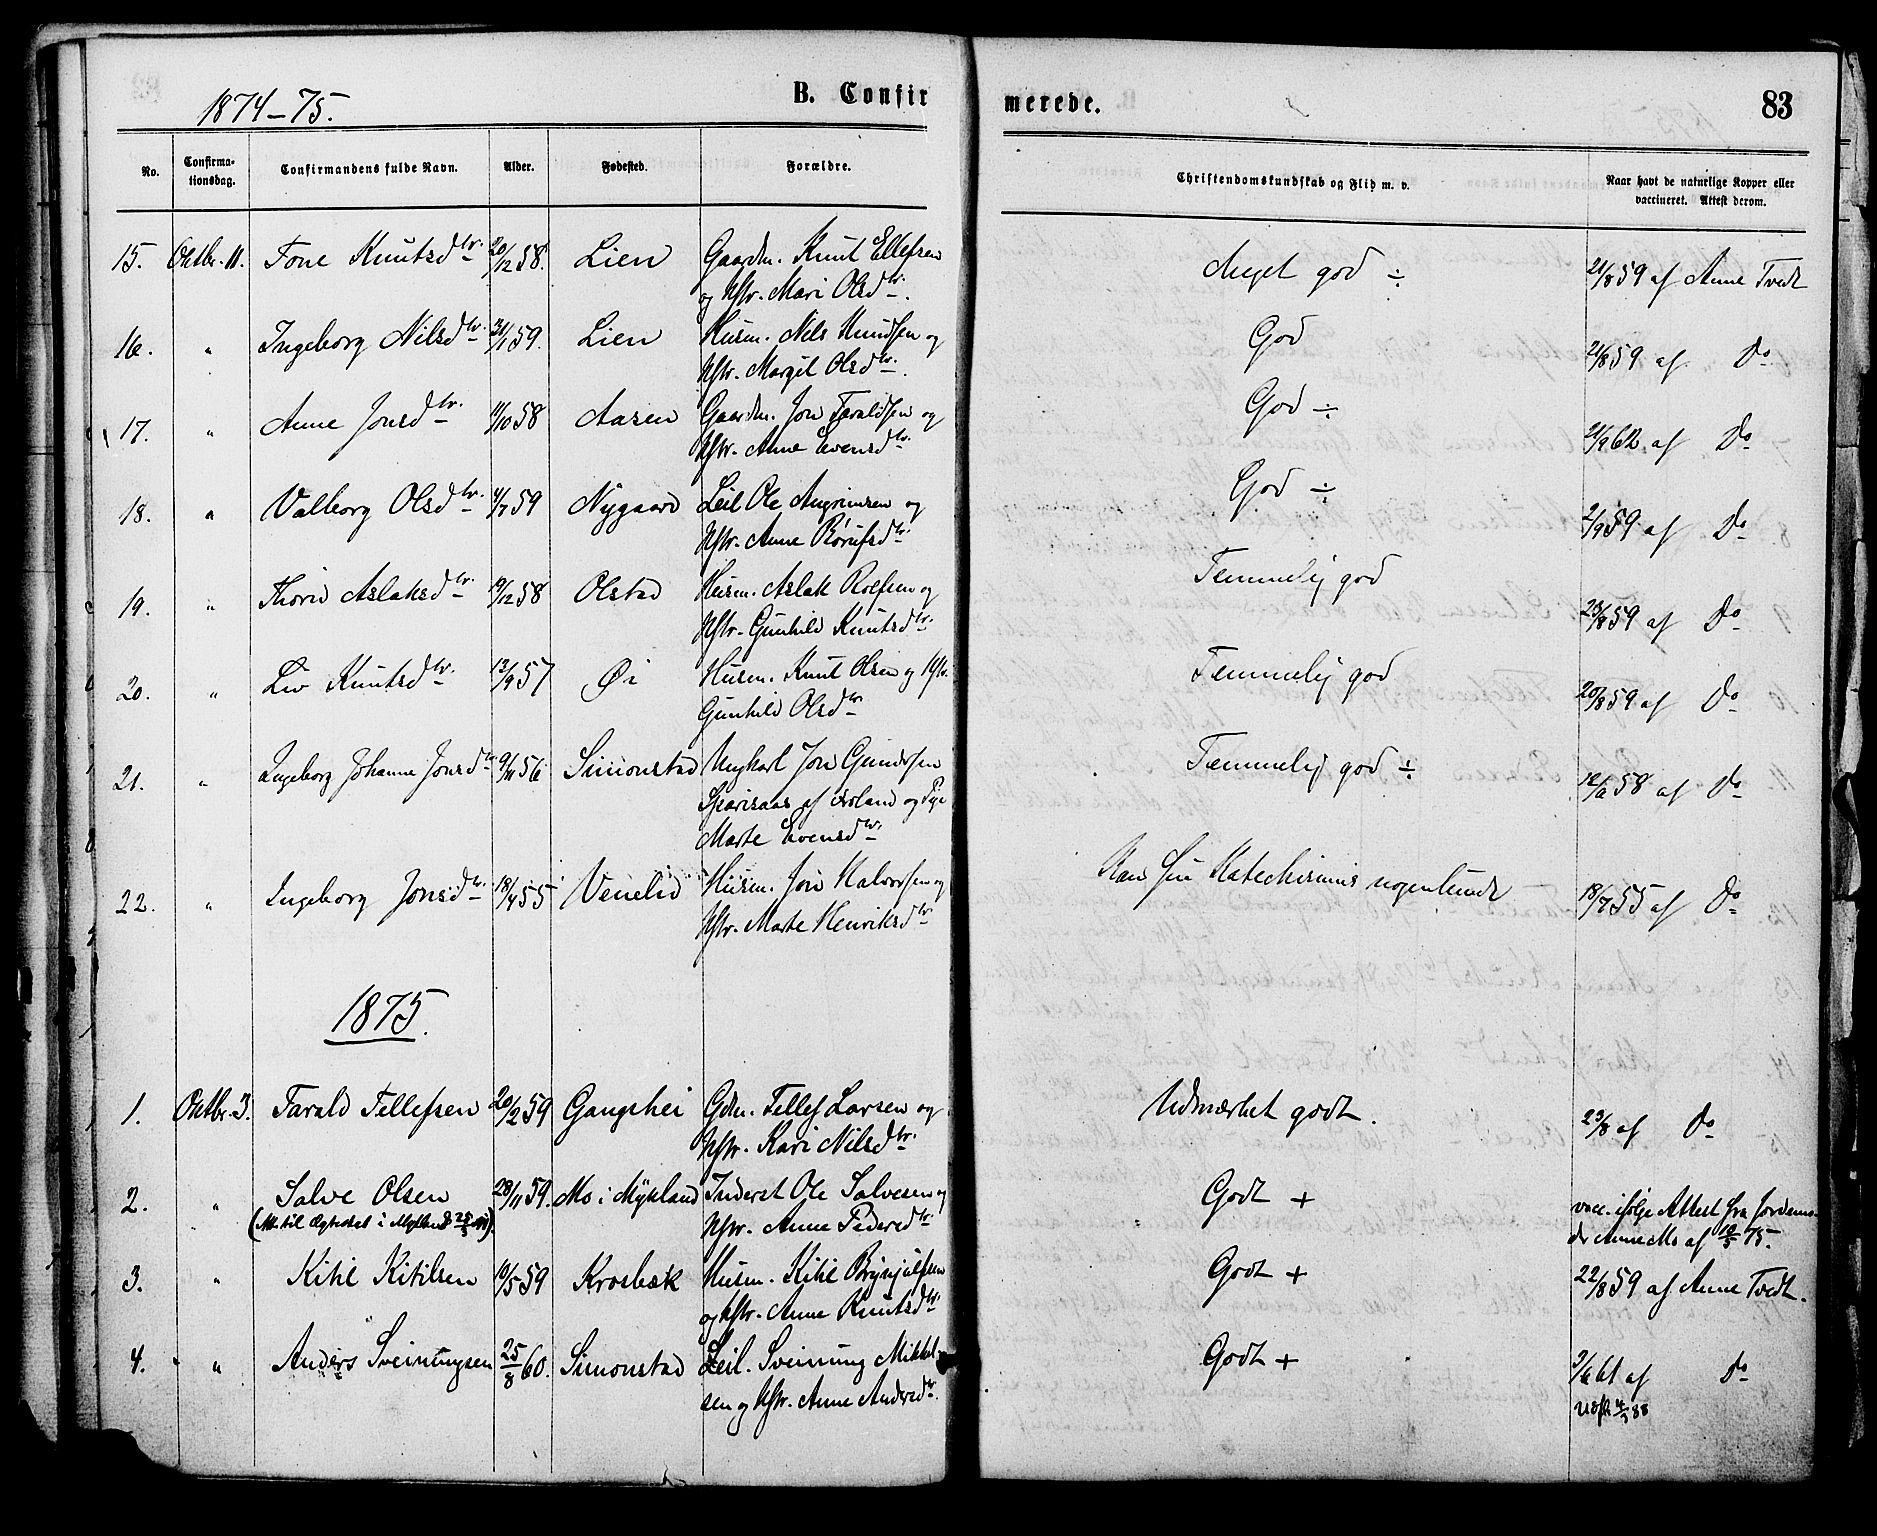 1874-75.
B. Confir
merede.
83
No.
Confirma-
tionsdag.
Confirmandens fulde Navn.
Alder.
Fødested.
Forældre.
Christendomskundskab og Flid m. v.
Naar havt de naturlige Kopper eller
vaccineret. Attest derom.
15. Oktbr. 11. Tone Knutsdtr. 20/12 58. Lien Gaardm. Knut Ellefsen
og Hstr. Mari Olsdtr.
Meget god ÷ 21/8 59 af Anne Tvedt
16. " Ingeborg Nilsdtr. 31/1 59. Lien Husm. Nils Knudsen og
Hstr. Margit Olsdtr.
God 21/8 59 af Do
17. " Anne Jonsdtr. 11/10 58 Aasen Gaardm. Jon Taraldsen og
Hstr. Anne Evensdtr.
God ÷ 21/9 62 af Do
18. " Valborg Olsdtr. 4/7 59 Nygaard Leil Ole Angrimsen og
Hstr. Anne Rorufsdtr.
God ÷ 2/9 59 af Do
19. " Thorid Aslaksdtr. 19/12 58 Olstad Husm. Aslak Rolfsen og
Hstr. Gunhild Knutsdtr.
Temmelig god 23/8 59 af Do
20. " Liv Knutsdtr. 13/9 57 Øi Husm. Knut Olsen og Hstr.
Gunhild Olsdtr
Temmelig god 20/8 59 af Do
21. " Ingeborg Johanne Jonsdtr 9/11 56 Simonstad Ungkarl Jon Gundersen
af og Pige
Marte Evensdtr.
Temmelig god ÷ 58 af Do
22. " Ingeborg Jonsdtr. 18/4 55 Venelid Husm. Jon Halvorsen og
Hstr. Marte Henriksdtr
Kan sin Katechismus nogenlunde 18/7 55 af Do
1875.
1. Oktbr. 3. Tarald Tellefsen 20/2 59 Gangshei Gdm. Tellef Larsen og
Hstr. Kari Nilsdtr.
Udmærket godt. 23/8 af Do
2. " Salve Olsen 28/11 59. Mo i Mykland Inderst Ole Salvesen og
Hstr. Anne Pedersdtr
Godt + vacc. ifølge Attest fra Jordemo-
der Anne Mo af 10/5 75.
3. " Kitil Kitilsen 10/5 59 Krosbæk Husm. Kitil Brynjulfsen
og Hstr. Anne Knutsdtr.
Godt + 22/8 59 af Anne Tvedt.
4. " Anders Sveinungsen 25/8 60. Simonstad Leil. Sveinung Mikkel-
sen og Hstr. Anne Andersdtr.
Godt + 3/6 61 af Do